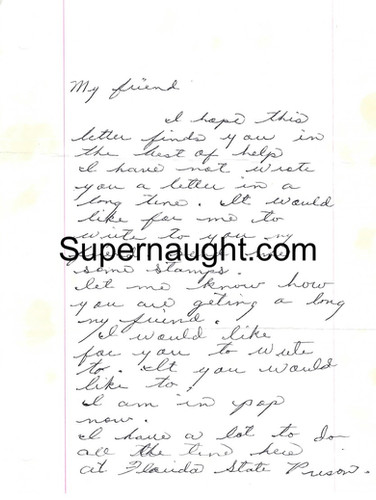 My friend
I hope this
letter finds you in
the best of help
I have not wrote
you a letter in a
long time. It would
like for me to
write to you my
Supernaught.com
some stamps.
let me know how
you are geting a long
my friend.
I would like
for you to write
to. It you would
like to.
I am in pop
now.
I have a lot to do
all the time here
at Florida State Prison.